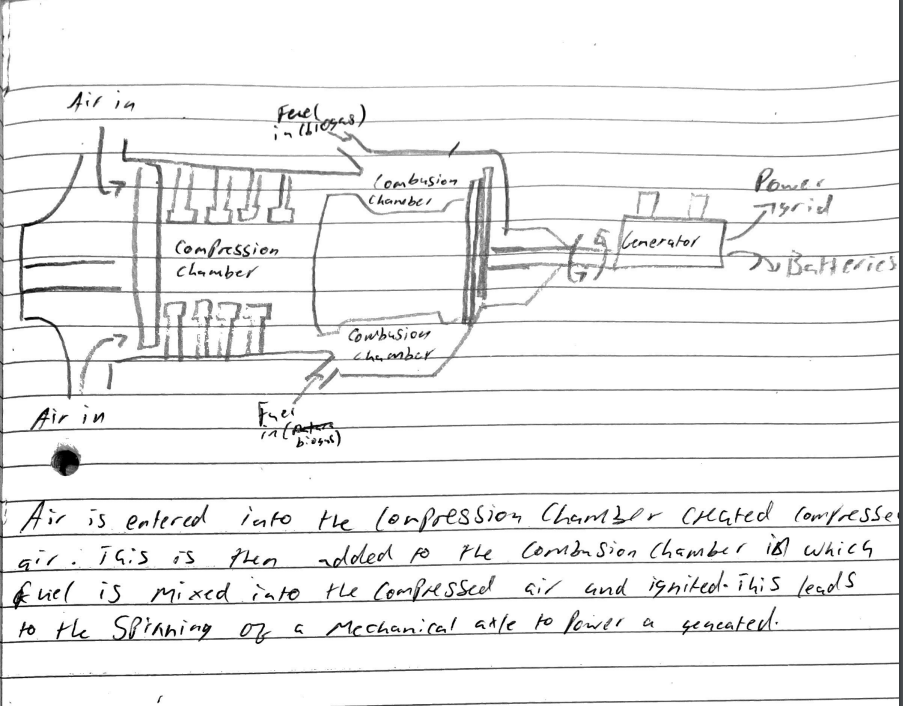 Air in
Fuel
in (biogas)
Combusion
Chamber
Power
grid
Generator
Compression
chamber
Batteries
Combusion
chamber
Air in
Fuel
in (
biogas)
Air is entered into the Compression Chamber created compresse
air. This is then added to the Combusion Chamber in which
fuel is mixed into the compressed air and ignited. This leads
to the spinning of a mechanical axle to power a geneated.